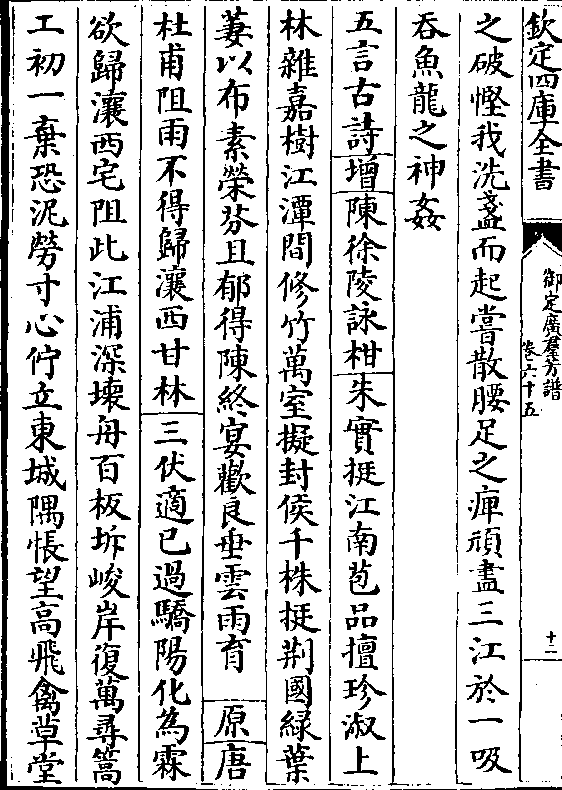 欽定四庫全書
御定廣羣芳譜
卷六十五
十二
之破慳我洗盞而起嘗散腰足之痺頑盡三江於一吸
吞魚龍之神姦
五言古詩增陳徐陵詠柑朱實挺江南苞品擅珍淑上
林雜嘉樹江潭間修竹萬室擬封侯千株挺荆國緑葉
萋以布素榮芬且郁得陳終宴歡良垂雲雨育 原唐
杜甫阻雨不得歸瀼西甘林 三伏適已過驕陽化為霖
欲歸瀼西宅阻此江浦深壞舟百板坼峻岸復萬尋篙
工初一棄恐泥勞寸心佇立東城隅悵望高飛禽草堂